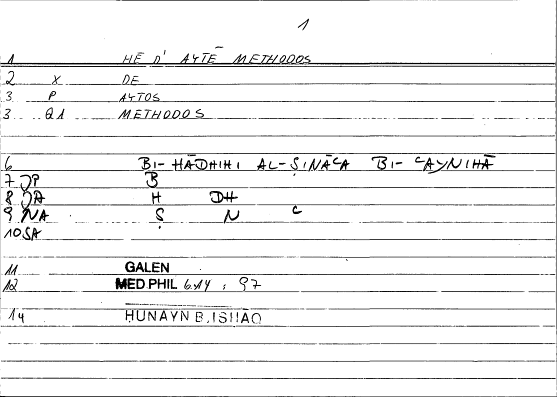 1
1 HĒ D' AYTĒ METHODOS
2 X DE
3 P AYTOS
3 QA METHODOS
6 BI- HĀDHIHI AL-ṢINĀʿA BI- ʿAYNIHĀ
7 JP B
8 JA H DH
9 NA Ṣ N ʿ
10 SA
11 GALEN
12 MED PHIL 6.14 : 97
14 ḤUNAYN B. ISḤĀQ